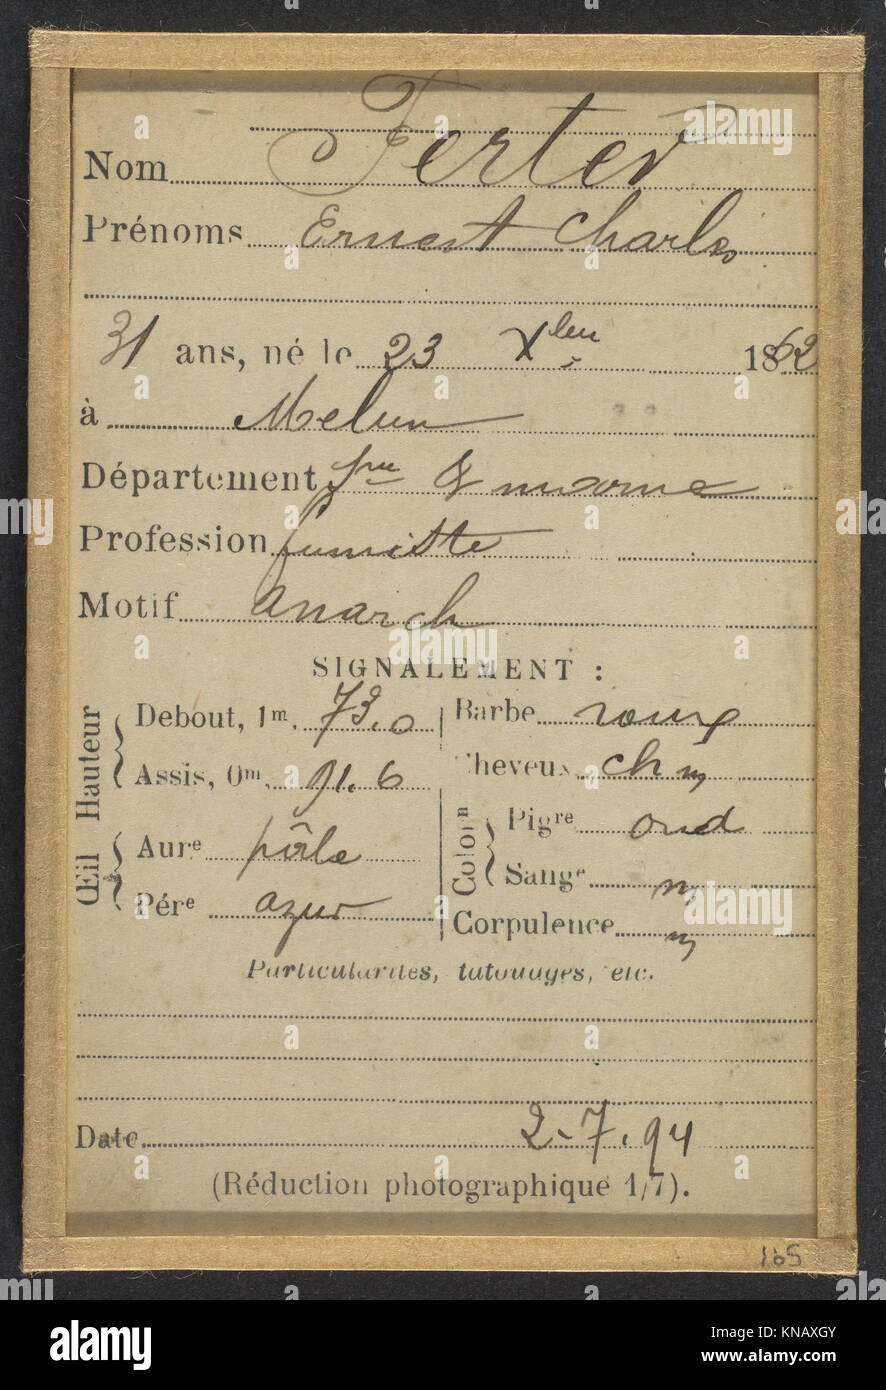 Nom Ferter
Prénoms Ernest Charles
31 ans, né le 23 Xbre 1862
à Melun
Département Sne & marne
Profession fumiste
Motif anarch
SIGNALEMENT :
Hauteur
Debout, 1m, 73.0
Assis, 0m, 91.6
Œil
Aure pâle
Pére azur
Barbe roux
Cheveux ch m
Colorn
Pigre
Sange m
Corpulence m
Particularités, tatouages, etc.
Date 2-7.94
(Réduction photographique 1/7).
165
alamy
www.alamy.com
Image ID: KNAXGY